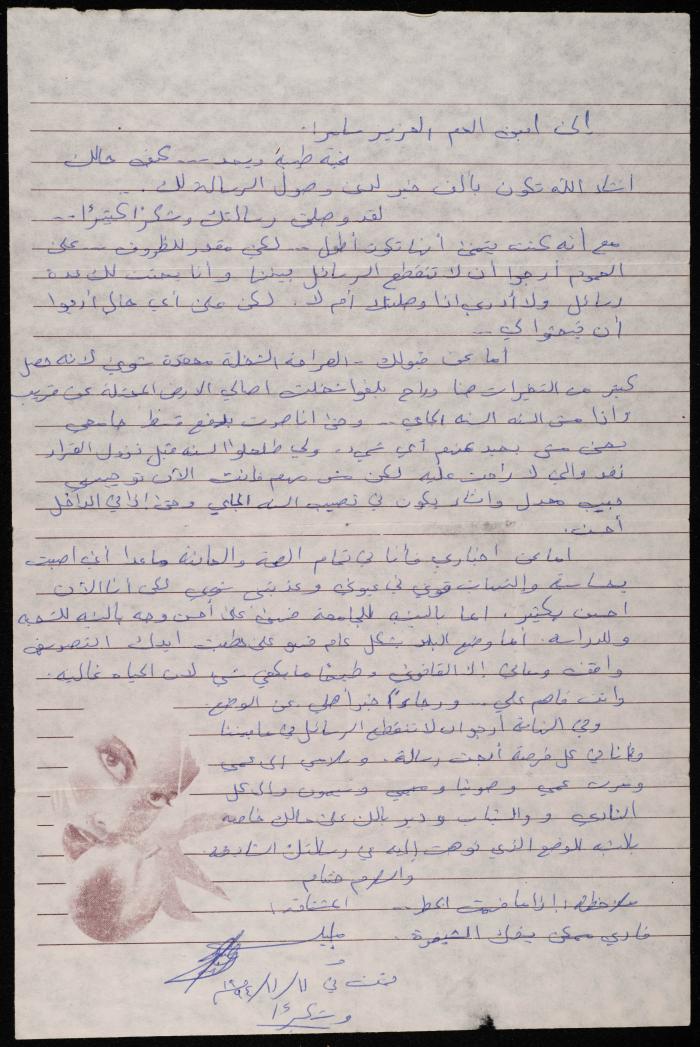 إلى ابن العم العزيز سامر:
تحية طيبة وبعد --- كيف حالك
انشاء الله تكون بألف خير لدى وصول الرسالة لك.
لقد وصلتني رسالتك وشكرًا كثيرًا --
مع أنه كنت بتمنى أنها تكون أطول -- لكني مقدر للظروف -- على
العموم أرجوا أن لا تنقطع الرسائل بيننا وأنا بعثت لك عدة
رسائل ولا أدري اذا وصلتك أم لا. لكن على أي حال أرجوا
أن تبعثوا لي --
أما عن قبولك - الصراحة الشغلة معقدة شوي لانه حصل
كثير من التغيرات هنا وراح يلغوا اهالي الارض المحتلة عن قريب
واذا مش السنه السنه الجاي -- وحتى انا صرت بدفع قسط جامعي
يعني مش بحبد عنهم أي شيء. ولي طلعلوا السنه قبل نزول القرار
نفد والي لا راحت عليه لكن مش مهم فانت الآن توجيهي
جيب معدل وانشاء يكون في نصيب السنه الجاي وحتى إذا في الداخل
أحسن.
اما عن اخباري فأنا في تمام الصحة والعافية ما عدا أني اصبت
بحساسية والتهابات قوي في عيوني وعذبتني شوي لكن أنا الآن
احسن بكثير. اما بالنسبه للجامعة فهي على أحسن وجه بالنسبه للشعبه
وللدراسة. أما وضع البلد بشكل عام فهو على حطت ايدك التصويف
واقف ومالي إلا القانوني وطبعًا ما بكفي شي لان الحياه غاليه.
وانت فاهم علي --- ورجاءً خبر أهلي عن الوضع
وفي النهاية أرجو ان لا تنقطع الرسائل في ما بيننا
وأنا في كل فرصة أبعث رسالة. وسلامي إلى عمي
ومرت عمي وصونيا و وسيمون والى كل
النادي و والشباب ودير بالك على حالك خاصه
بالنسبه للوضع الذي نوهت إليه في رسالتك السابقة.
والسلام ختام
ملاحظة: إذا ما فهمت الخط -- المشتاق:
فادي ممكن يفك الشيفرة.
تمت في ١١/١١/
وشكرًا